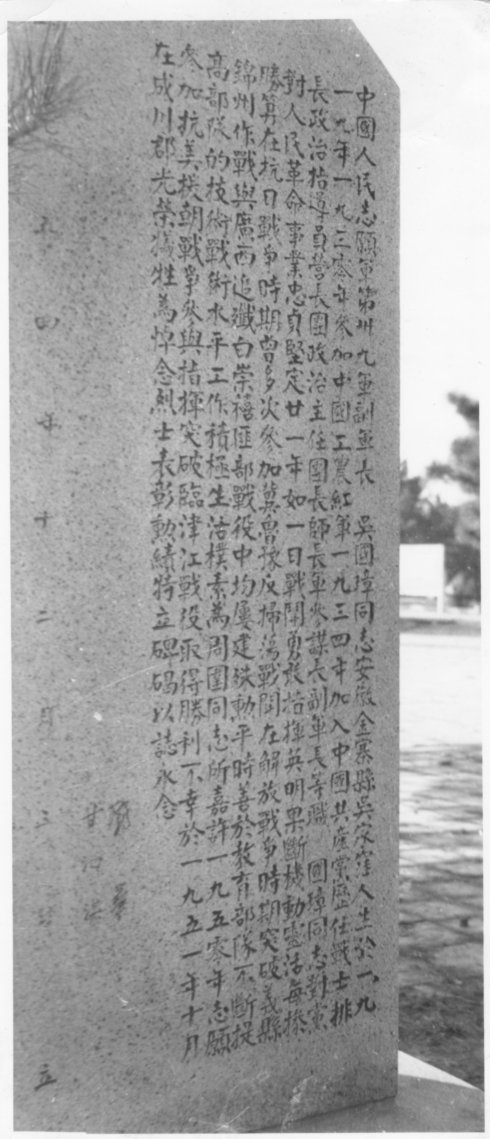 中國人民志願軍第卅九軍副軍長　吳國璋同志安徽金寨縣吳家窪人生於一九
一九年一九三零年參加中國工農紅軍一九三四年加入中國共產黨歷任戰士排
長政治指導員營長團政治主任團長師長軍參謀長副軍長等職　國璋同志對黨
對人民革命事業忠貞堅定廿一年如一日戰鬥勇敢指揮英明果斷機動靈活每操
勝算在抗日戰爭時期曾多次參加冀魯豫反掃蕩戰鬥在解放戰爭時期突破義縣
錦州作戰與廣西追殲白崇禧匪部戰役中均屢建殊勳平時善於教育部隊不斷提
高部隊的技術戰術水平工作積極生活樸素為周圍同志所嘉許一九五零年志願
參加抗美援朝戰爭參與指揮突破臨津江戰役取得勝利不幸於一九五一年十月
在成川郡光榮犧牲為悼念烈士表彰勳績特立碑碣以誌永念
甘
四年十二月三 立